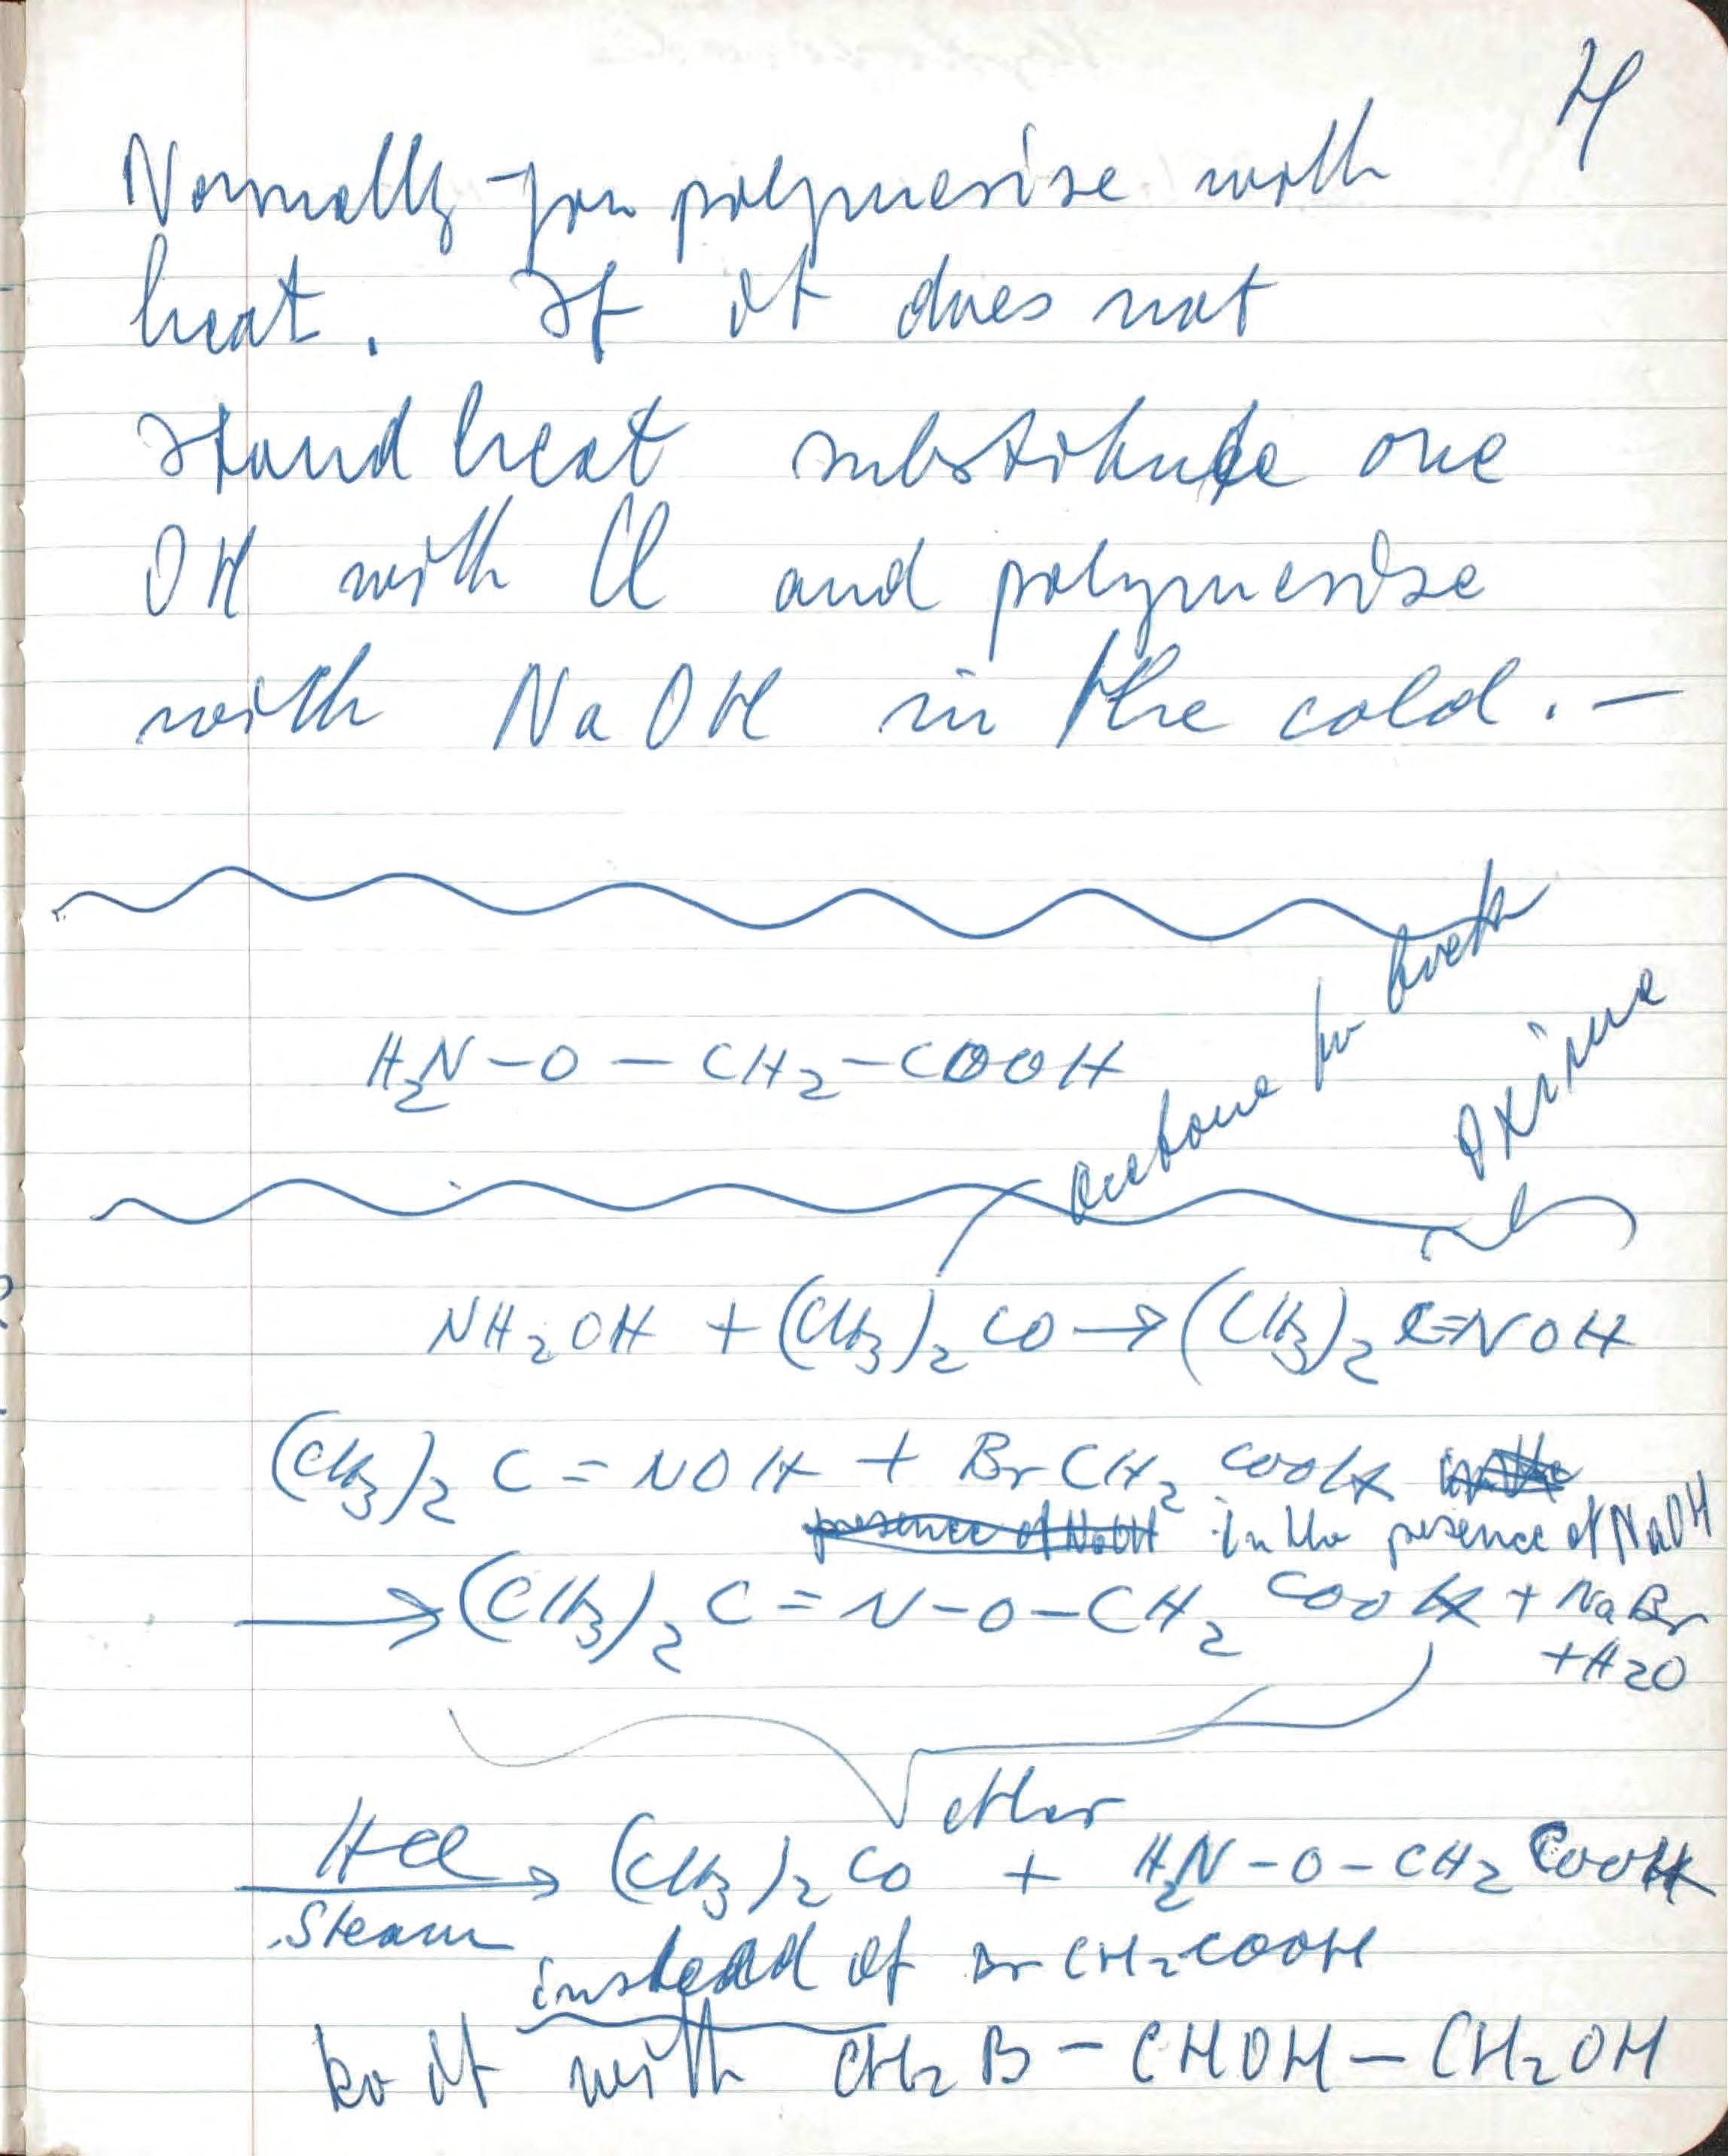 4
Normally you polymerise with
heat. If it does not
stand heat substitute one
OH with Cl and polymerise
with NaOH in the cold. —
H₂N—O—CH₂—COOH
Acetone
Oxime
NH₂OH + (CH₃)₂CO → (CH₃)₂C=NOH
(CH₃)₂C=NOH + BrCH₂COOH
presence of NaOH in the presence of NaOH
→ (CH₃)₂C=N—O—CH₂COOH + NaBr
+ H₂O
ether
HCl
→ (CH₃)₂CO + H₂N—O—CH₂COOH
Steam
instead of BrCH₂COOH
do it with CH₂B—CHOH—CH₂OH